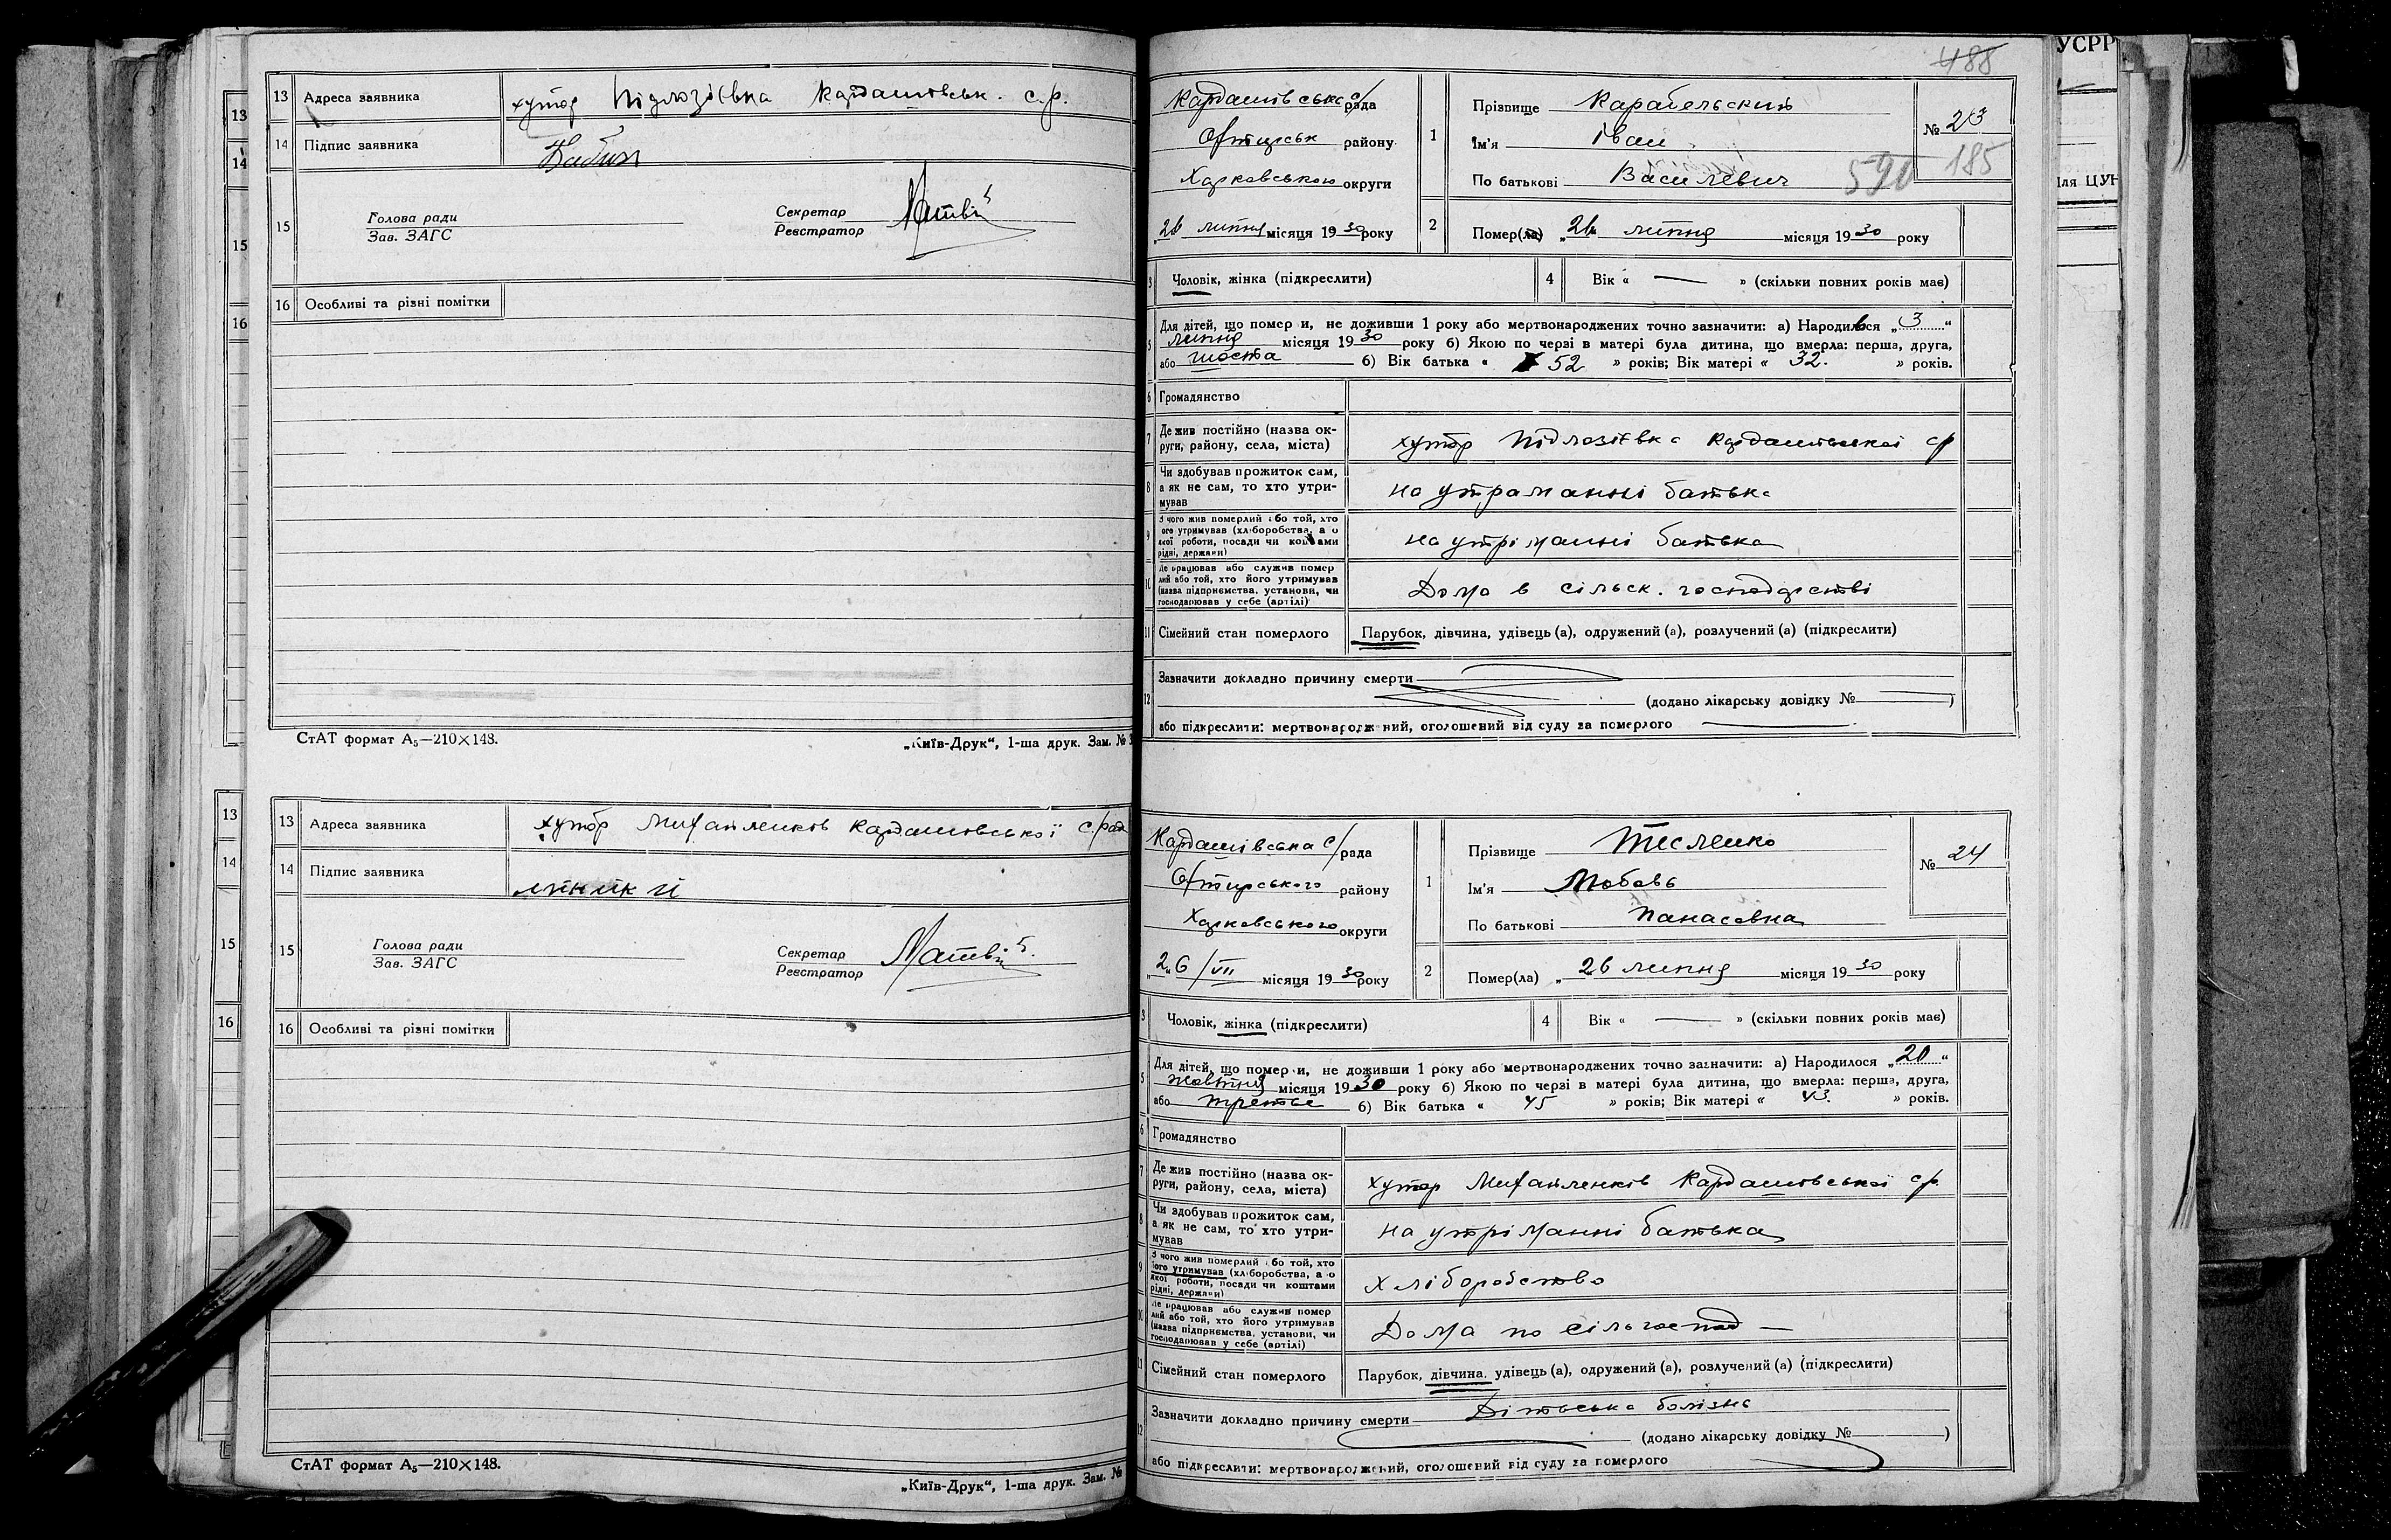 13 Адреса заявника хутор Підлозіївка Кардашовськ. с.р.
14 Підпис заявника
15 Голова ради Секретар
Зав. ЗАГС Реєстратор
16 Особливі та різні помітки
СтАТ формат А₅—210×148. „Київ-Друк“, 1-ша друк. Зам. №
13 Адреса заявника хутор Михайленков Кардашовської с/рад
14 Підпис заявника
15 Голова ради Секретар
Зав. ЗАГС Реєстратор
16 Особливі та різні помітки
СтАТ формат А₅—210×148.
„Київ-Друк“, 1-ша друк. Зам. №
13
14
15
16
13
14
15
16
488
Кардашівська с/рада
Охтирськ району
Харковського округи
1 Прізвище Карабельский
Ім'я Іван
По батькові Василевич
№ 23
590 185
„26 липня місяця 1930 року
2 Помер(ла) „26 липня місяця 1930 року
3 Чоловік, жінка (підкреслити) 4 Вік « — » (скільки повних років має)
5 Для дітей, що померли, не доживши 1 року або мертвонароджених точно зазначити: а) Народився „3“
липня місяця 1930 року б) Якою по черзі в матері була дитина, що вмерла: перша, друга,
або шоста б) Вік батька « 52 » років; Вік матері « 32. » років.
6 Громадянство
7 Де жив постійно (назва ок-
руги, району, села, міста) хутор Підлозіївка Кардашовської ср
8 Чи здобував прожиток сам,
а як не сам, то хто утри-
мував на утраманні батька
9 З чого жив померлий або той, хто
його утримував (хліборобства, або
якої роботи, посади чи коштами
рідні, держави) на утріманні батька
10 Де працював або служив помер
лий або той, хто його утримував
(назва підприємства, установи, чи
господарював у себе (артілі) Дома в сільск. господарстві
11 Сімейний стан померлого Парубок, дівчина, удівець (а), одружений (а), розлучений (а) (підкреслити)
12 Зазначити докладно причину смерти
(додано лікарську довідку № — )
або підкреслити: мертвонароджений, оголошений від суду за померлого
Кардашівська с/рада
Охтирського району
Харковського округи
1 Прізвище Тесленко
Ім'я Любовь
По батькові Панасовна
№ 24
„26/VII місяця 1930 року
2 Помер(ла) „26 липня місяця 1930 року
3 Чоловік, жінка (підкреслити) 4 Вік « — » (скільки повних років має)
5 Для дітей, що померли, не доживши 1 року або мертвонароджених точно зазначити: а) Народилося „20“
жовтня місяця 1930 року б) Якою по черзі в матері була дитина, що вмерла: перша, друга,
або третье б) Вік батька « 45 » років; Вік матері « 43. » років.
6 Громадянство
7 Де жив постійно (назва ок-
руги, району, села, міста) хутор Михайленків Кардашовської ср
8 Чи здобував прожиток сам,
а як не сам, то хто утри-
мував на утріманні батька
9 З чого жив померлий або той, хто
його утримував (хліборобства, або
якої роботи, посади чи коштами
рідні, держави) Хліборобство
10 Де працював або служив помер
лий або той, хто його утримував
(назва підприємства, установи, чи
господарював у себе (артілі) Дома по сільгоспод —
11 Сімейний стан померлого Парубок, дівчина, удівець (а), одружений (а), розлучений (а) (підкреслити)
12 Зазначити докладно причину смерти Дітська болізнь
(додано лікарську довідку № — )
або підкреслити: мертвонароджений, оголошений від суду за померлого
УСРР
для ЦУН